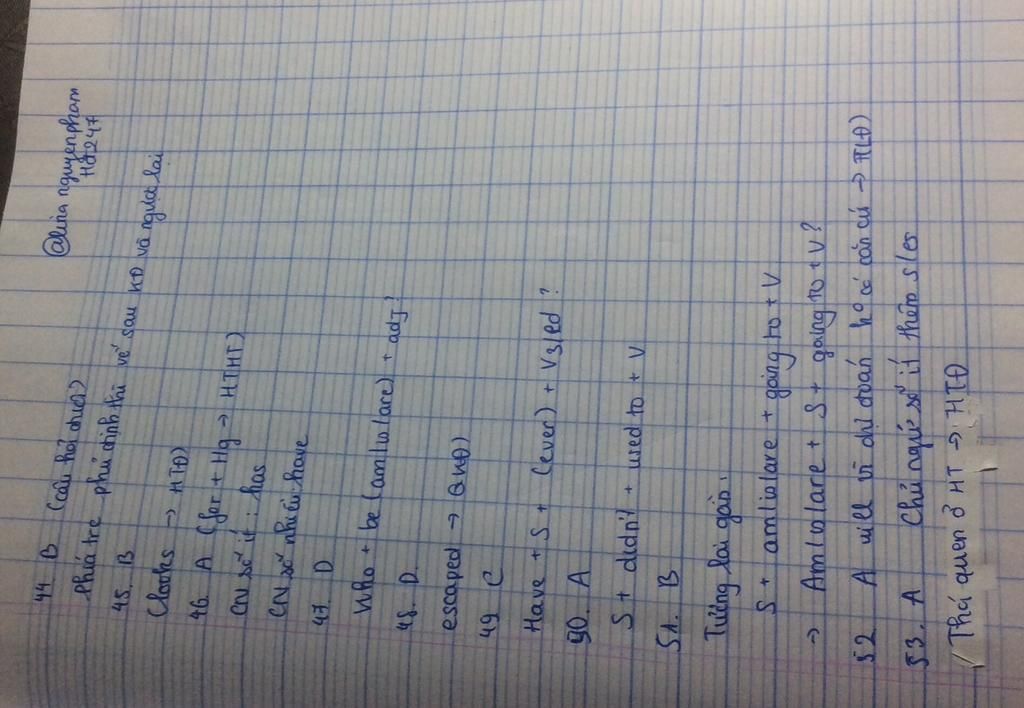 @lina nguyenpham
Hg247
44. B (câu hỏi đuôi)
Phía trc phủ định thì vế sau KĐ và ngược lại
45. B
(looks → HTĐ)
46. A (for + Hg → HTHT)
CN số ít : has
CN số nhiều have
47. D
Who + be (am/is/are) + adj ?
48. D
escaped → QKĐ)
49 C
Have + S + (ever) + V3/ed ?
50. A
S + didn't + used to + V
51. B
Tương lai gần :
S + am/is/are + going to + V
→ Am/is/are + S + going to + V ?
52 A will vì dự đoán ko có căn cứ → TLĐ)
53. A Chủ ngữ số ít thêm s/es
Thói quen ở HT → HTĐ